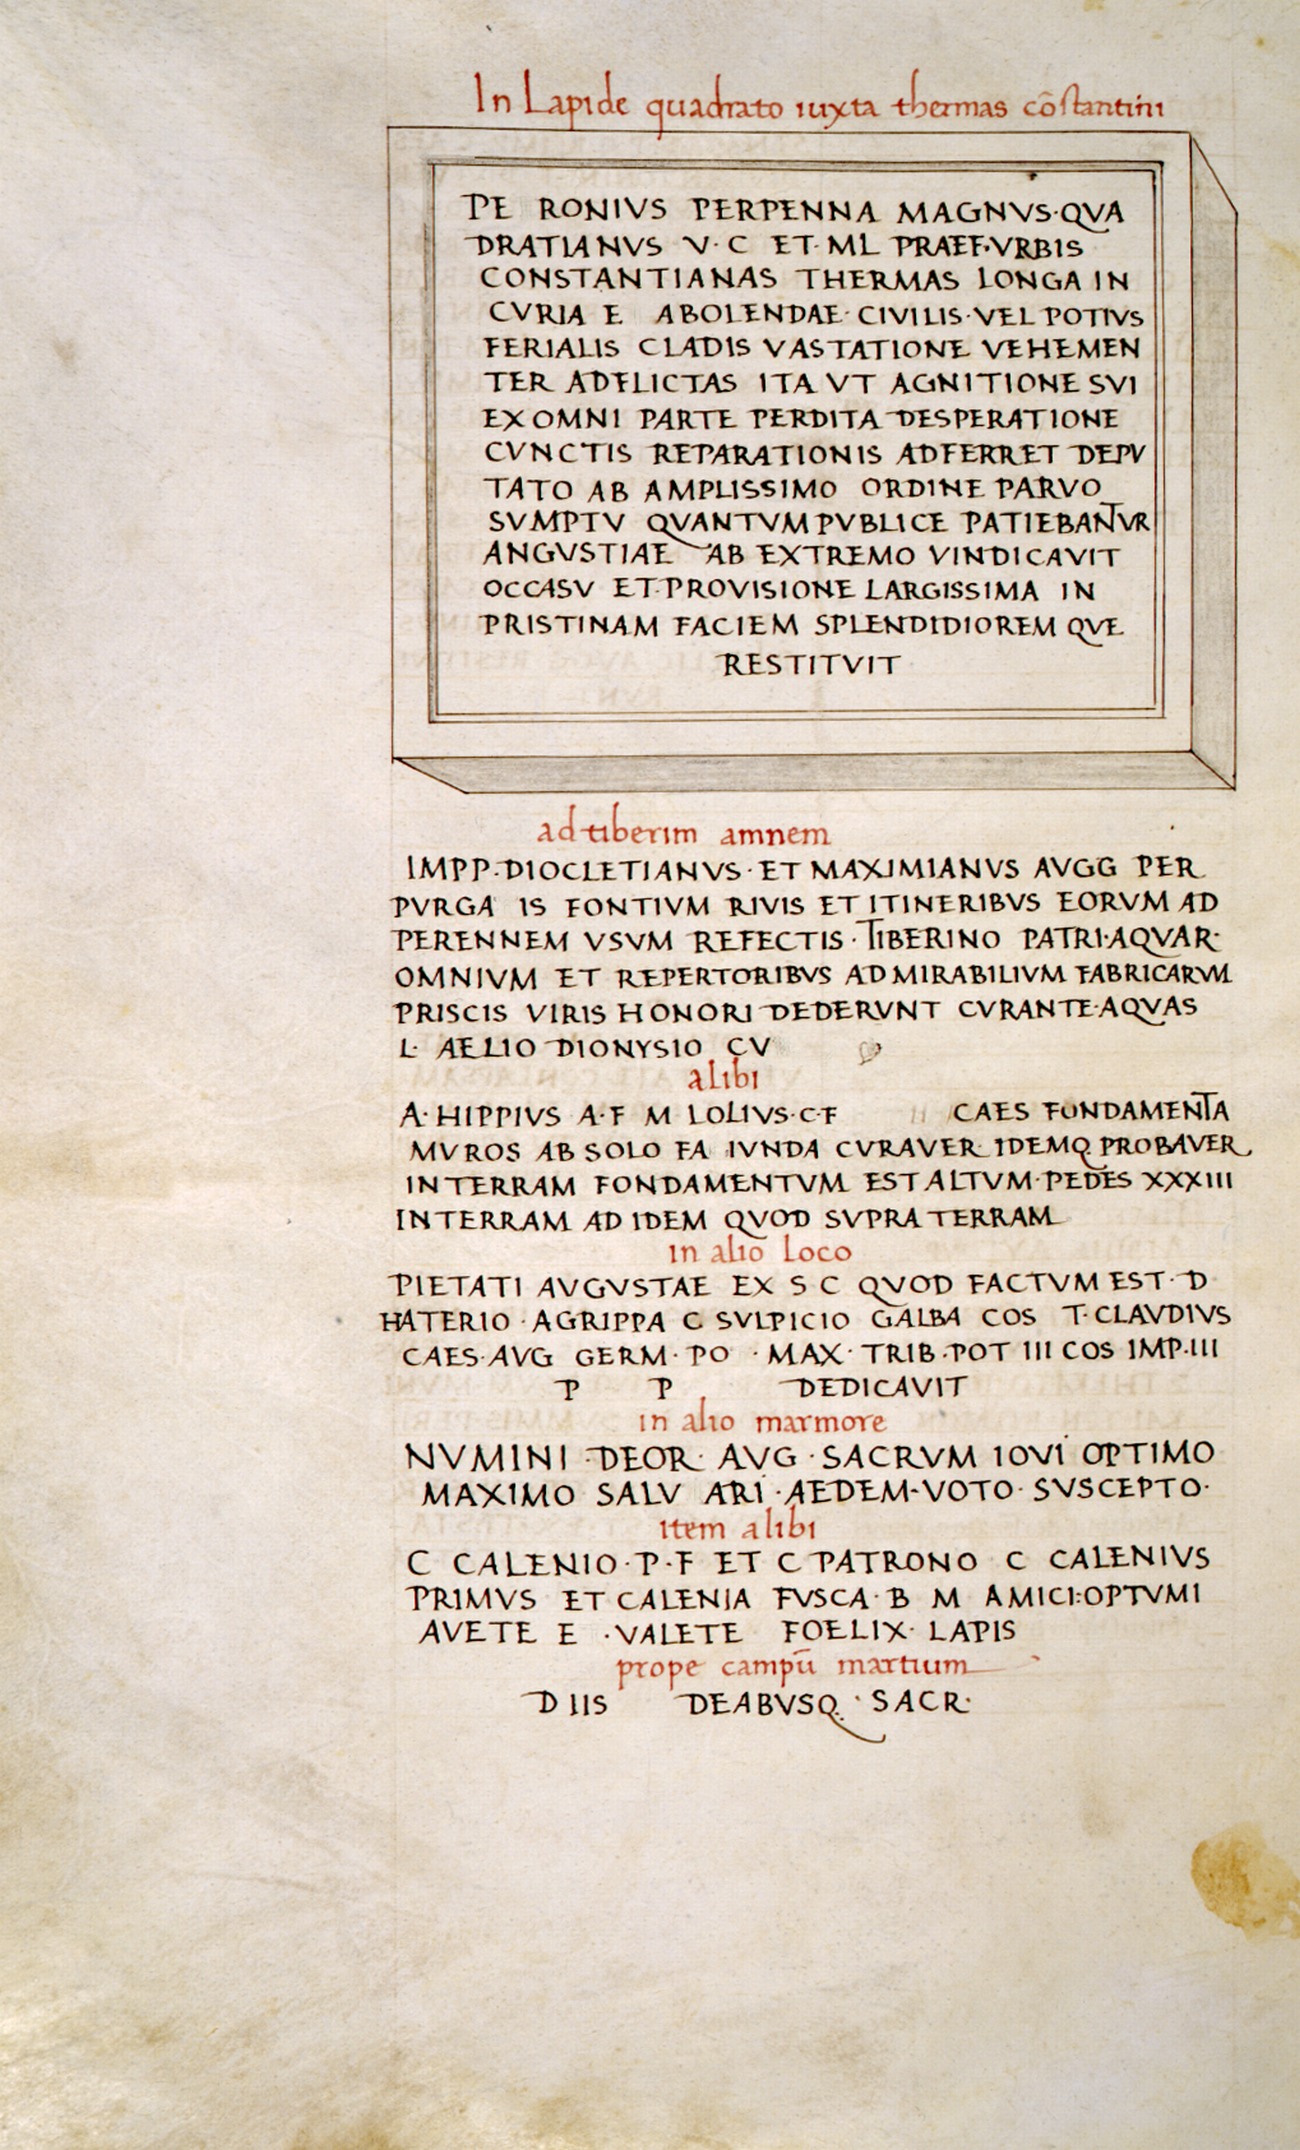 In Lapide quadrato iuxta thermas cōstantini
PE RONIVS PERPENNA MAGNVS·QVA
DRATIANVS V·C ET·ML PRAEF·VRBIS
CONSTANTIANAS THERMAS LONGA IN
CVRIA E ABOLENDAE·CIVILIS·VEL POTIVS
FERIALIS CLADIS VASTATIONE VEHEMEN
TER ADFLICTAS ITA VT AGNITIONE SVI
EX OMNI PARTE PERDITA DESPERATIONE
CVNCTIS REPARATIONIS ADFERRET DEPV
TATO AB AMPLISSIMO ORDINE PARVO
SVMPTV QVANTVM PVBLICE PATIEBANTVR
ANGVSTIAE AB EXTREMO VINDICAVIT
OCCASV ET·PROVISIONE LARGISSIMA IN
PRISTINAM FACIEM SPLENDIDIOREM QVE
RESTITVIT
ad tiberim amnem
IMPP·DIOCLETIANVS·ET MAXIMIANVS AVGG PER
PVRGA IS FONTIVM RIVIS ET ITINERIBVS EORVM AD
PERENNEM VSVM REFECTIS·TIBERINO PATRI·AQVAR·
OMNIVM ET REPERTORIBVS ADMIRABILIVM FABRICARVM
PRISCIS VIRIS HONORI DEDERVNT CVRANTE·AQVAS
L· AELIO DIONYSIO CV
alibi
A·HIPPIVS A·F M LOLIVS·C·F CAES FUNDAMENTA
MVROS AB SOLO FA IVNDA CVRAVER IDEMQ PROBAVER
IN TERRAM FONDAMENTVM EST ALTVM·PEDES XXXIII
IN TERRAM AD IDEM QVOD SVPRA TERRAM
in alio loco
PIETATI AVGVSTAE EX S C QVOD FACTVM EST·D
HATERIO·AGRIPPA C SVLPICIO GALBA COS T·CLAVDIVS
CAES·AVG GERM·PO ·MAX·TRIB·POT III COS IMP·III
P P DEDICAVIT
in alio marmore
NVMINI DEOR·AVG·SACRVM IOVI OPTIMO
MAXIMO SALV ARI·AEDEM·VOTO·SVSCEPTO·
item alibi
C CALENIO·P·F ET C PATRONO C CALENIVS
PRIMVS ET CALENIA FVSCA·B M AMICI:OPTVMI
AVETE E ·VALETE FOELIX·LAPIS
prope campū martium
DIIS DEABVSQ·SACR·